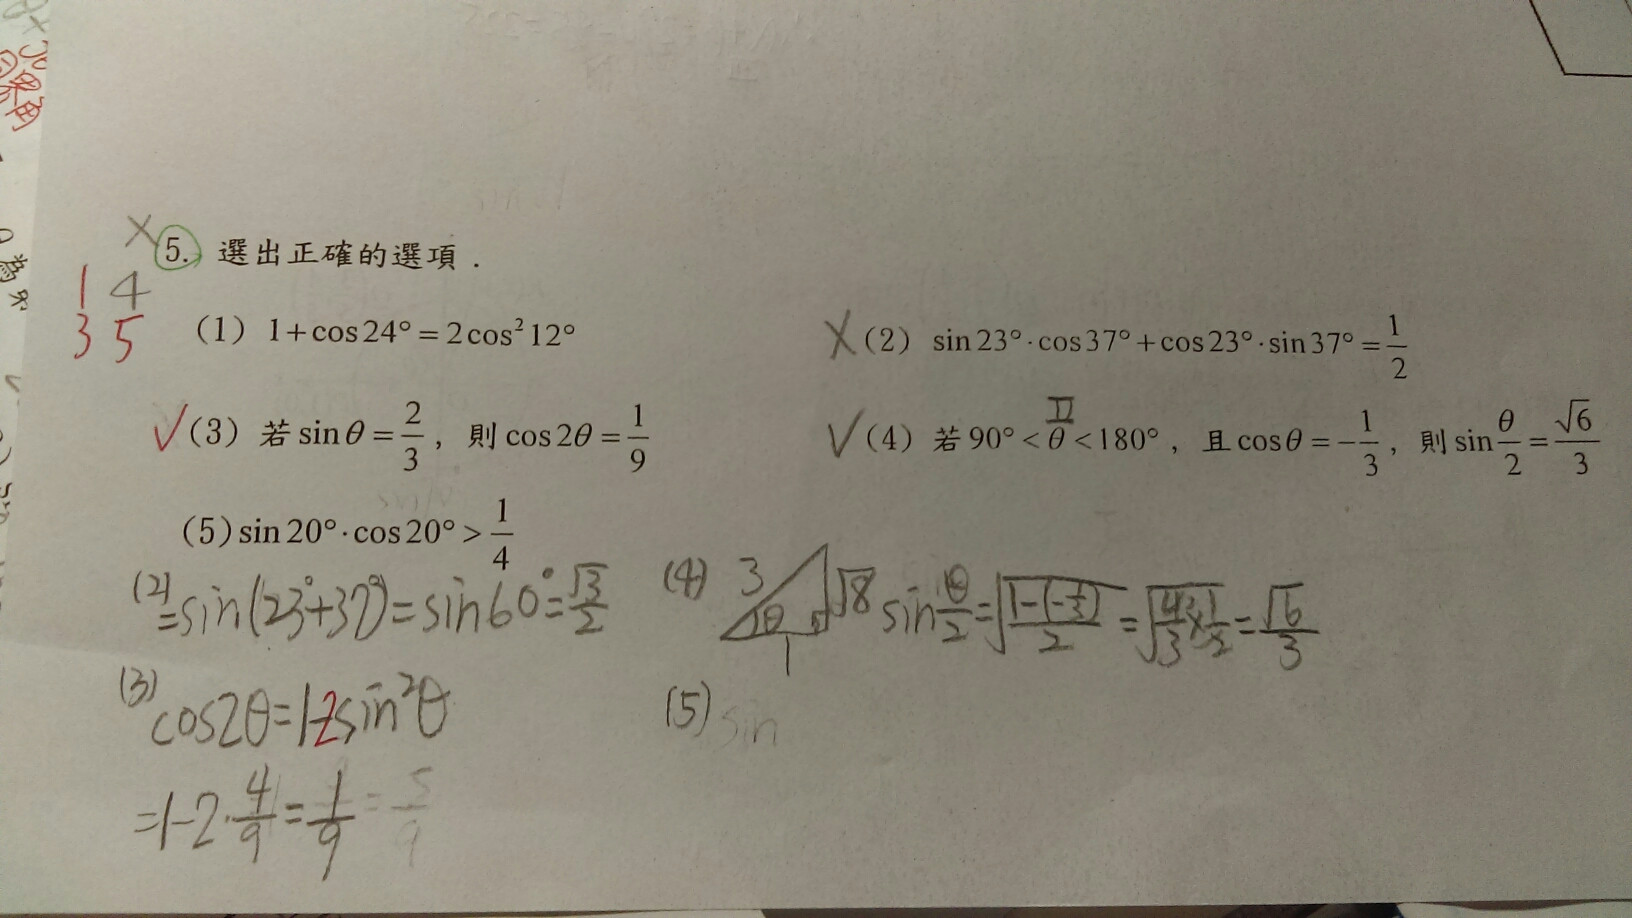 × 5. 選出正確的選項.
1 4
3 5
(1) 1+cos24°=2cos²12°
×(2) sin23°·cos37°+cos23°·sin37°=1/2
✓(3) 若 sinθ=2/3, 則 cos2θ=1/9
✓(4) 若 90°<θ<180°, 且 cosθ=-1/3, 則 sin θ/2=√6/3
II
(5) sin20°·cos20°>1/4
(2) =sin(23°+37°)=sin60°=√3/2
(3) cos2θ=1-2sin²θ
=1-2·4/9=1/9=5/9
(4) 3 √8 θ 1 sin θ/2=√((1-(-1/3))/2)=√(4/3×1/2)=√6/3
(5) sin